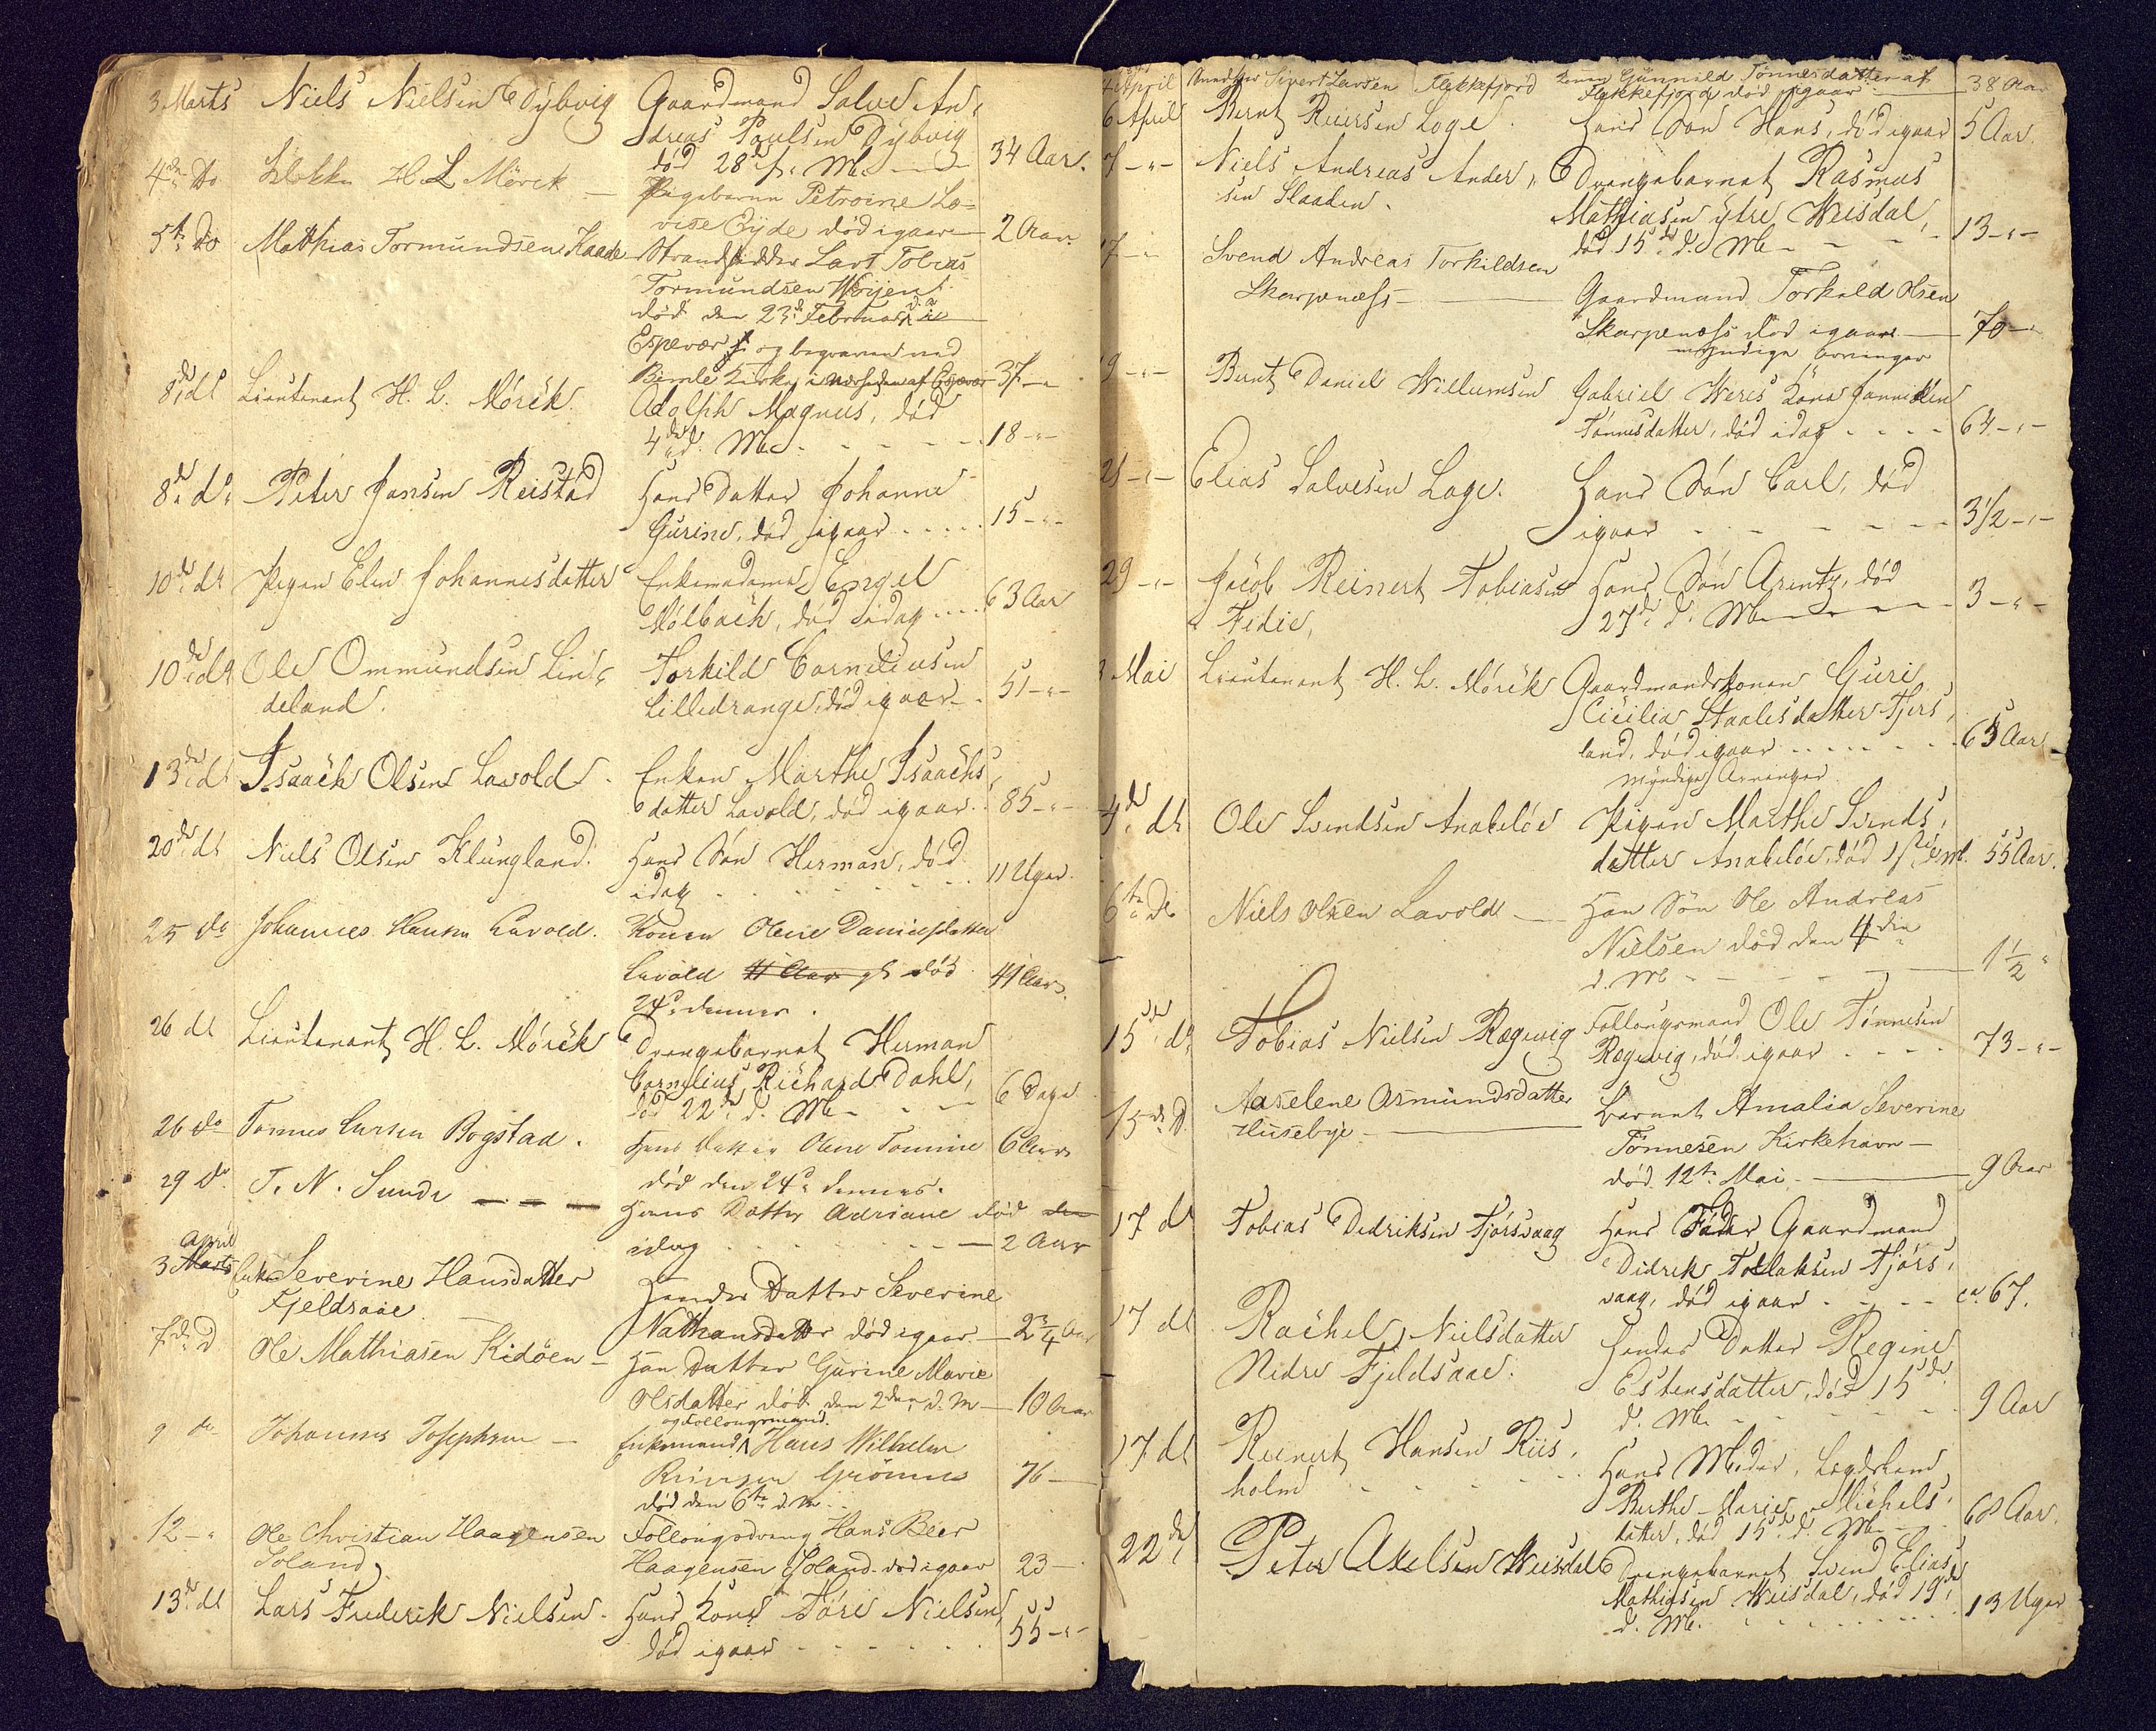 3 Marts Niels Nielsen Dybvig Gaardmand Salve An-
dreas Poulsen Dybvig
død 28de f. Md. 34 Aar.
4de Do H L Mörck — Pigebarn Petroine Lo-
vise Eyde død igaar — 2 Aar.
5te do Matthias Tormundsen Haade Strandsidder Lars Tobias
Tormundsen
død den 23d Februar d. a.
Espevær og begraven ved
Bömle Kirke i nærheden af Espevær 37 - " -
8de dt Lieutenant H. L. Mörck. Adolph Magnus, død
4de d. Md. 18 - " -
8de dt Peter Jansen Reistad Hans Datter Johanne
Gurine, død igaar 15 - " -
10de dt Pigen Elen Johannesdatter Enkemadame Engel
Mölbach, død idag 63 Aar
10de dt Ole Ommundsen Lin- Torkild Corneliusen
deland. Lilledrange, død igaar 51 - " -
13de dt Isaach Olsen Lavold. Enken Marthe Isaachs-
datter Lavold, død igaar. 85 - " -
20de dt Niels Olsen Klungland. Hans Søn Herman, død
idag 11 Uger.
25 do Johannes Hansen Lavold. Konen Olene Danielsdatter
Lavold 41 Aar gl død 41 Aar.
24d dennes.
26 dt Lieutenant H. L. Mörck Drengebarnet Herman
Cornelius Richard Dahl,
død 22de d. Md. 6 Dage
26 do Tönnes Larsen Bogstad. Hans Datter Olene Tomine 6 Aar
død den 24d dennes.
29 do T. N. Sunde — — — Hans Datter Adriane død den
idag — 2 Aar
April
3 Marts Enke Severine Hansdatter Hendes Datter Severine
Fjeldsaae
Nathansdatter død igaar — 2¾ Aar
7de D Ole Mathiasen Kidöen — Han Datter Gurine Marie
Olsdatter død den 2den d. M — 10 Aar
og Follougsmand.
9 do Johannes Josephsen — Enkemand Hans Wilhelm
Reiersen Grönnes 76 —
død den 6te d. M.
12 - " Ole Christian Haagensen Follougsdreng Hans Beer
Soland Haagensen Soland. død igaar 23 —
13de dt Lars Frederik Nielsen. Hans Kone Töre Nielsen,
død igaar 55 - " -
4 April Sivert Larsen Flekkefjord Konen Gunnild Tönnesdatter af
Flekkefjord død igaar 38 Aar
6 April Bernt Reiersen Loge. Hans Søn Hans, død igaar 5 Aar.
7 - " - Niels Andreas Ander- Drengebarnet Rasmus
sen Staalen. Mathiasen ytre Weisdal,
død 15de d. Md. 13 - " -
17 - " Svend Andreas Torkildsen
Skarpenæss — Gaardmand Torkeld Olsen
Skarpenæss død igaar — 70 - "
myndige arvinger
19 - " - Bernt Daniel Willumsen Gabriel Weres Kone Janniken
Tönnesdatter, død idag 64 - " -
21 - " - Elias Salvesen Loge. Hans Søn Carl, død
igaar 3½ - " -
29 - " - Jacob Reinert Tobiasen Hans Søn Arentz, død
Fidie, 27de d. Md. 3 - " -
3 Mai Lieutenant H. L. Mörck Gaardmandskonen Guri
Cicilia Staalesdatter Fjers-
land, død igaar 63 Aar
myndige Arvinger
4de dt Ole Svendsen Anabelöe Pigen Marthe Svends-
datter Anabelöe, død 1ste d. M. 55 Aar.
6te do Niels Olsen Lavold — Han Søn Ole Andreas
Nielsen død den 4den
d. M — 1½ "
15de dt Tobias Nielsen Rægevig Follougsmand Ole Tönnesen
Rægevig, død igaar 73 - " -
15de D. Aaselene Asmundsdatter Barnet Amalia Severine
Husebye — Tönnesen Kirkehavn —
død 12te Mai — 9 Aar
17 dt Tobias Dedriksen Fjörsvaag Hans Fader Gaardmand
Didrek Tollaksen Fjörs-
vaag, død igaar ca 67.
17 dt Rachel Nielsdatter Hendes Datter Regine
Nedre Fjeldsaae. Estensdatter, død 15de
d. Md. 9 Aar
17 dt Reinert Hansen Riis- Hans Moder, Lægdslem
holm Berthe Marie Michels-
datter, død 15de d. Md. 68 Aar.
22de Peter Axelsen Weisdal Drengebarnet Svend Elias
Mathiasen Weisdal, død 19de
d. Md. 13 Uger